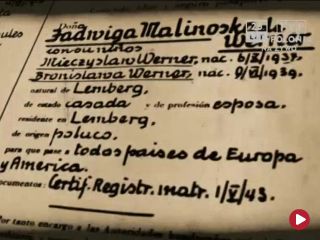 Doña
Jadwiga Malinoska de
Werner
con sus niños
Mieczyslaw Werner, nac. 6/II/1937.
Bronislawa Werner, nac. 9/VI/1939.
natural de Lemberg,
de estado casada y de profesión esposa.
residente en Lemberg,
de origen polaco.
para que pase a todos paises de Europa
y America.
Documentos: Certif. Registr. matr. 1/V/43.
Por tanto encargo a las Autoridades